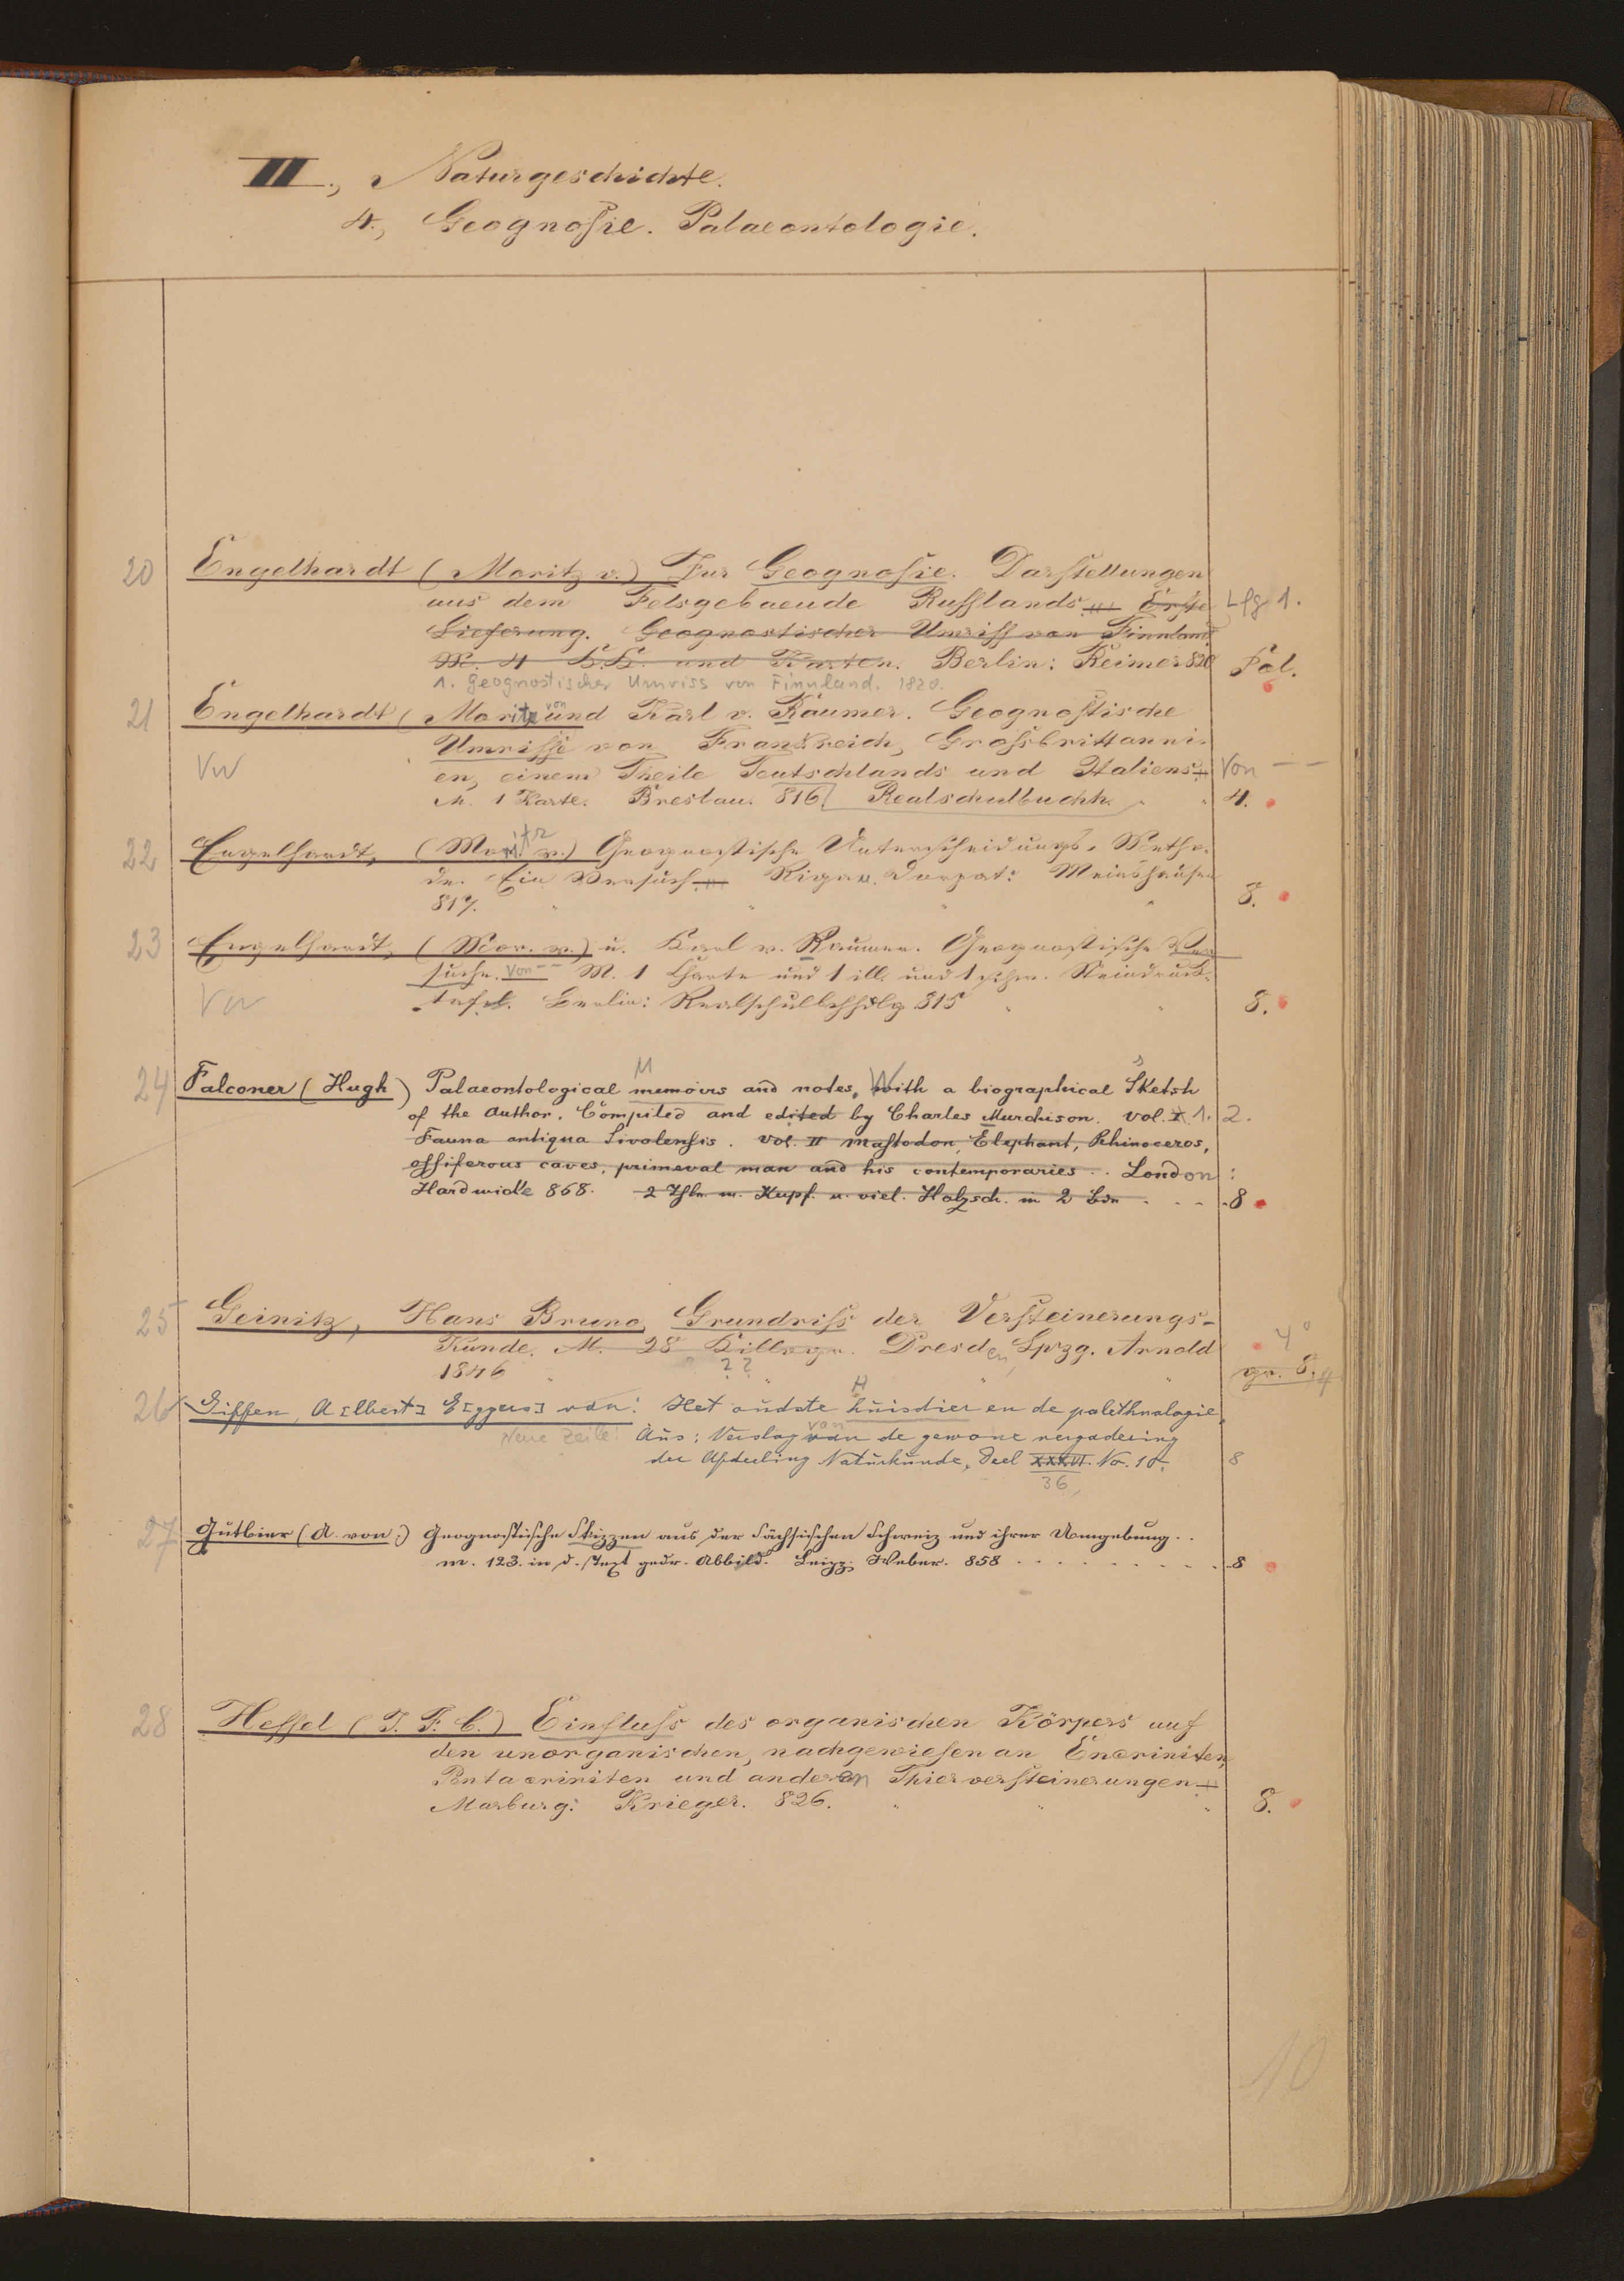 III., Naturgeschichte.
4., Geognosie. Palaeontologie.
20 Engelhardt (Moritz v.) Zur Geognosie. Darstellungen
aus dem Felsgebaeude Russlands Erste Lfg 1.
Lieferung. Geognostischer Umriss von Finnland
M. 4 und Karten. Berlin: Reimer 820 Fol.
1. Geognostischer Umriss von Finnland. 1820.
21 Engelhardt (Moritz von und Karl v. Raumer. Geognostische
Umrisse von Frankreich, Grossbrittanni-
Vw en, einem Theile Teutschlands und Italiens Von — —
M. 1 Karte. Breslau. 816. Realschulbuchh. 4.
22 Engelhardt, (Moritz v.) Geognostische Unterscheidungs-Metho-
de. Ein Versuch. Riga u. Dorpat: Meinshausen
817. 8.
23 Engelhardt, (Mor. v.) u. Karl v. Raumer. Geognostische Ver
suche. Von — M. 1 Charte und 1 ill. und 1 schw. Steindruck-
Vw tafel. Berlin: Realschulbchhdlg 815 8.
24 Falconer (Hugh) Palaeontological memoirs and notes, With a biographical Sketsh
of the Author. Compiled and edited by Charles Murchison. Vol. I 1. 2.
Fauna antiqua Sivalensis. Vol. II Mastodon, Elephant, Rhinoceros,
ossiferous caves, primeval man and his contemporaries.. London:
Hardwicke 868. 2 Thle. m. Kupf. u. viel. Holzsch. in 2 Bdn 8
25 Geinitz, Hans Bruno, Grundriss der Versteinerungs-
Kunde. M. 28 Dresden, Lpzg. Arnold 4°
1846 ?? gr. 8. 4
26 Giffen, A[lbert] E[ggers] van: Het oudste huisdier en de palethnologie,
Neue Zeile: Aus: Verslag van de gewone vergadering
der Afdeeling Natuurkunde, Deel XXXVI. No. 10. 8
36,
27 Gutbier (A. von:) Geognostische Skizzen aus der Sächsischen Schweiz und ihrer Umgebung..
m. 123. in d. Text gedr. Abbild. Leipz. Weber. 858 8
28 Hessel (J. F. C.) Einfluss des organischen Körpers auf
den unorganischen, nachgewiesen an Encriniten,
Pentacriniten und anderen Thierversteinerungen
Marburg: Krieger. 826. 8.
10